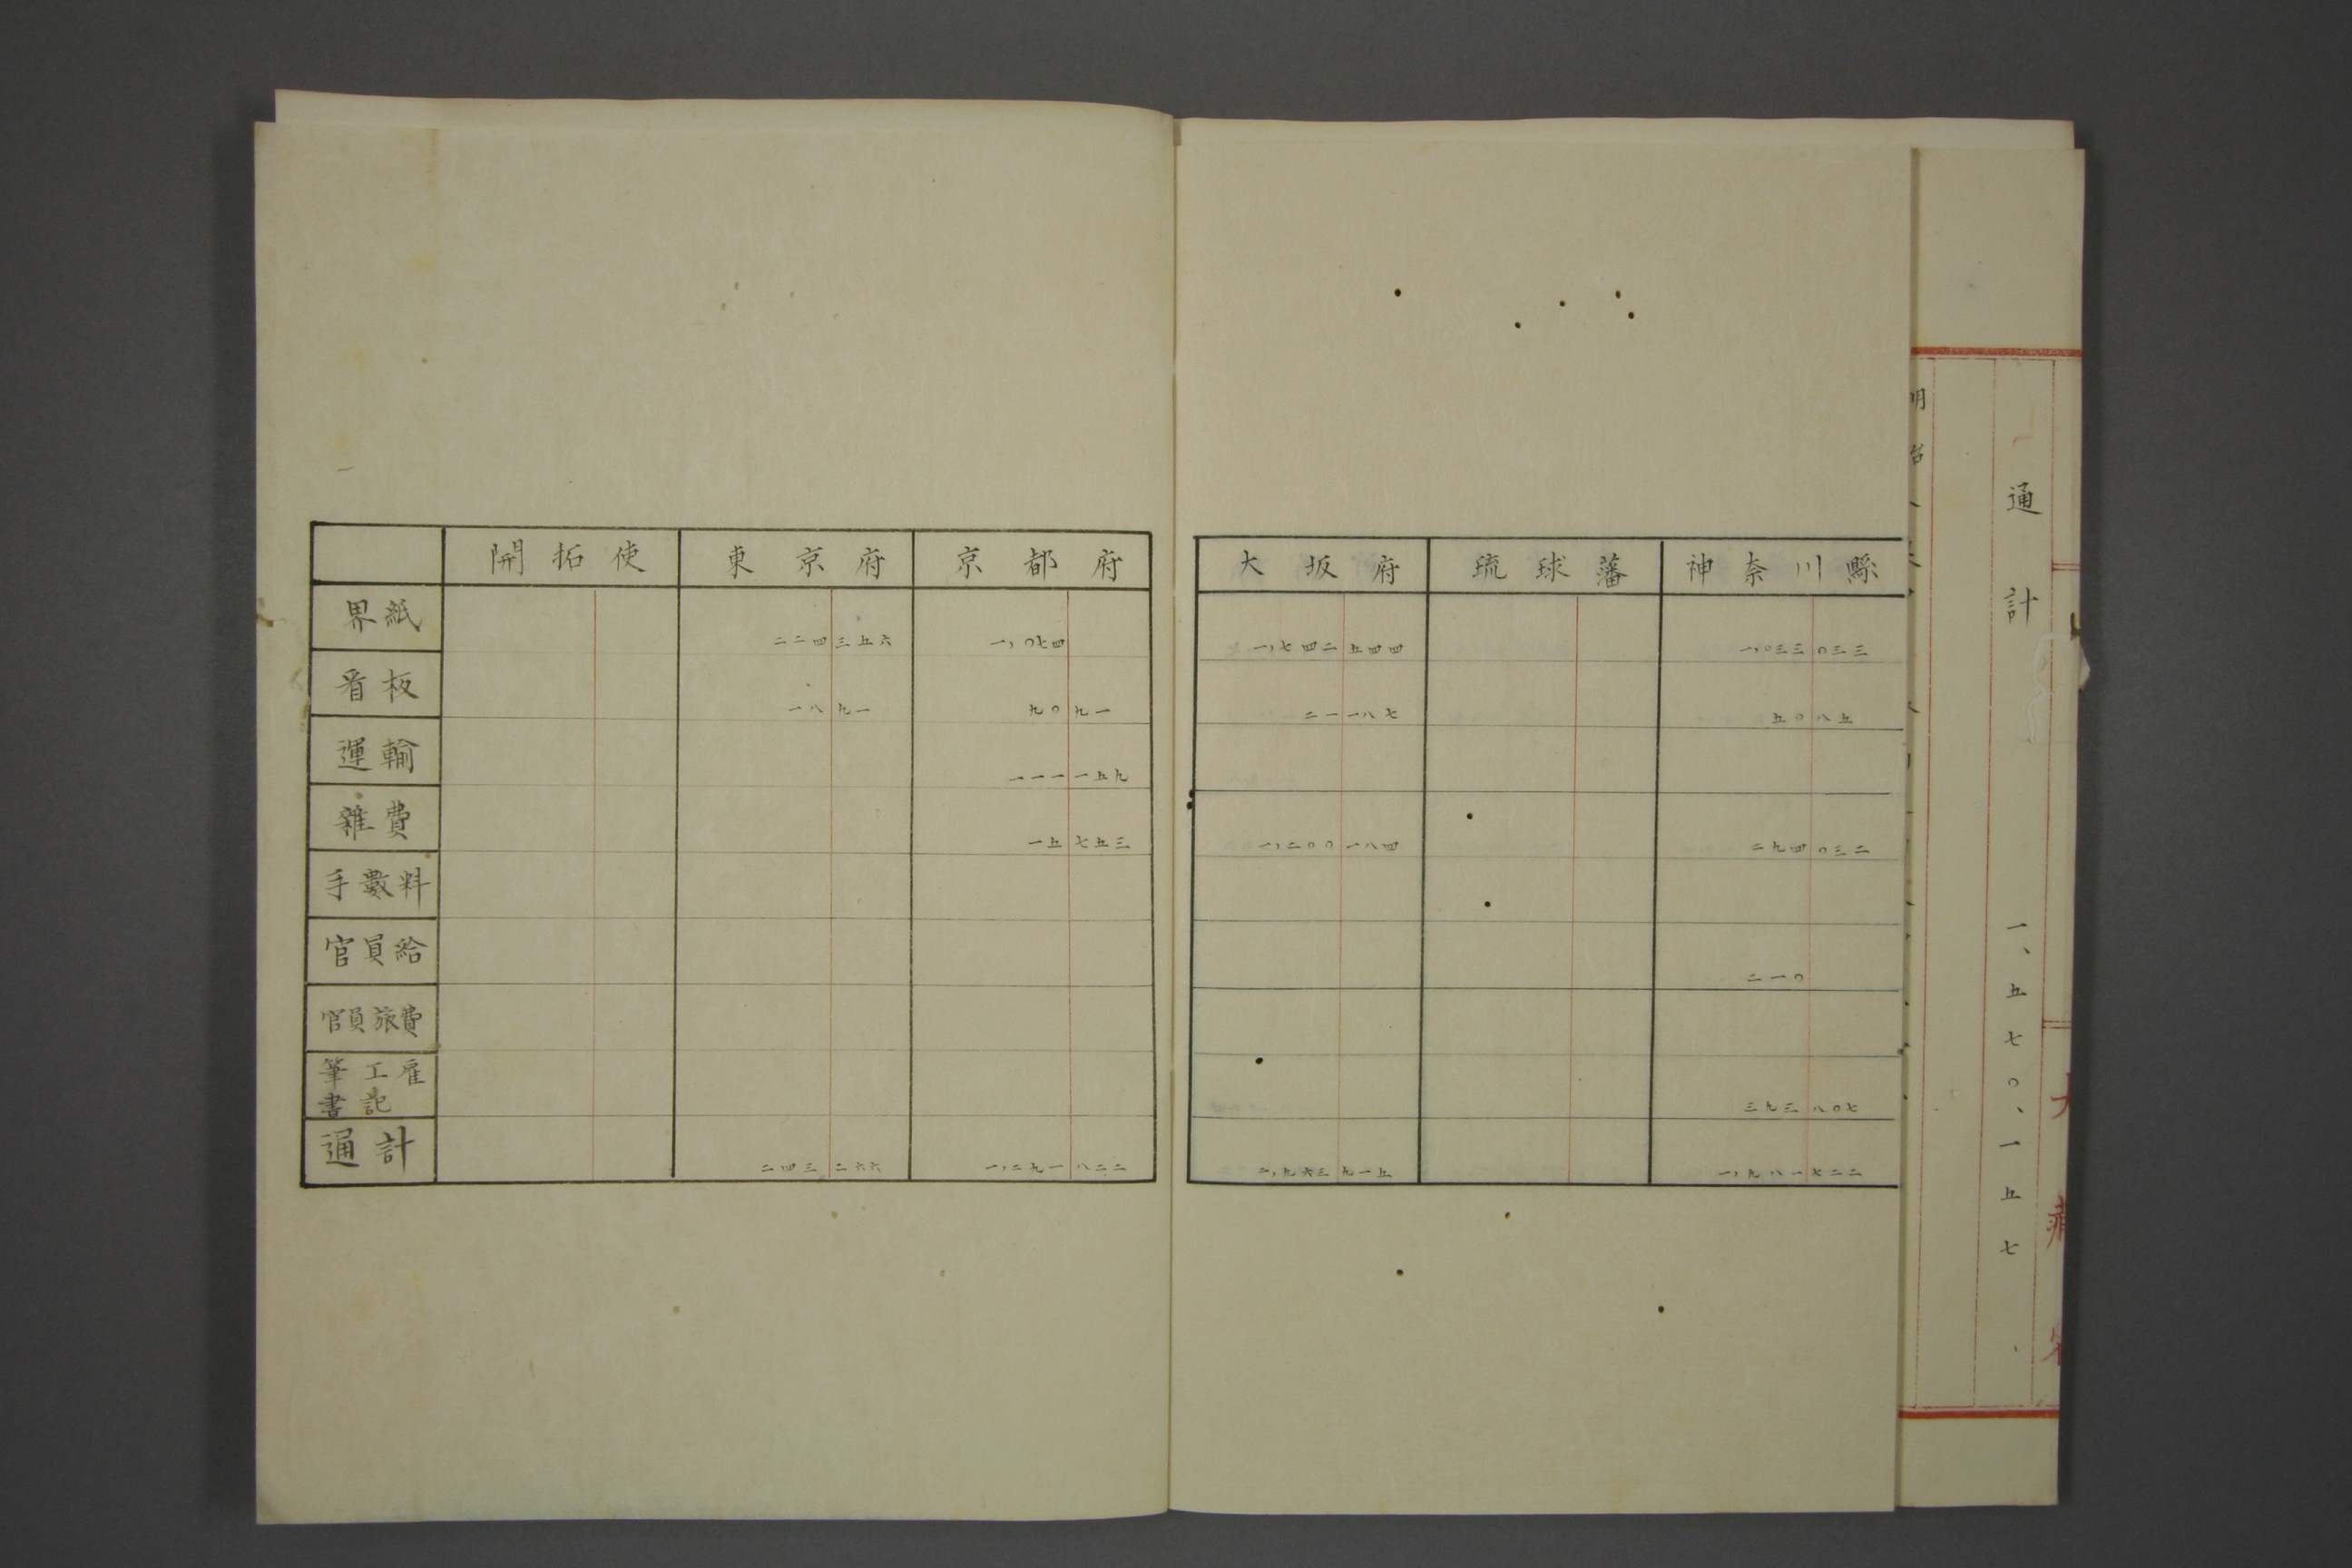 開拓使 東京府 京都府 大坂府 琉球藩 神奈川縣
界紙 二二四 三五六 一,〇七四 一,七四二 五四四 一,〇三三 〇三三
看板 一八 九一 九〇 九一 二一 一八七 五〇 八五
運輸 一一一 一五九
雜費 一五 七五三 一,二〇〇 一八四 二九四 〇三二
手數料
官員給 二一〇
官員旅費
筆工雇
書記 三九三 八〇七
通計 二四三 二六六 一,二九一 八二二 二,九六三 九一五 一,九八一 七二二
通計 一、五七〇、一五七
明治